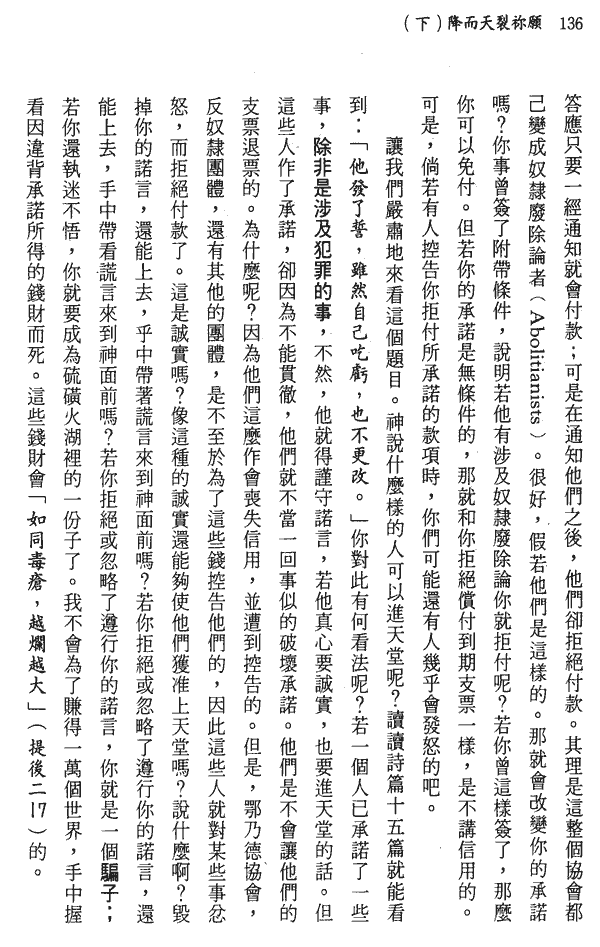 願祢裂天而降（下） 136
答應只要一經通知就會付款；可是在通知他們之後，他們卻拒絕付款。其理是這整個協會都
己變成奴隸廢除論者（Abolitianists）。很好，假若他們是這樣的。那就會改變你的承諾
嗎？你事曾簽了附帶條件，說明若他有涉及奴隸廢除論你就拒付呢？若你曾這樣簽了，那麼
你可以免付。但若你的承諾是無條件的，那就和你拒絕償付到期支票一樣，是不講信用的。
可是，倘若有人控告你拒付所承諾的款項時，你們可能還有人幾乎會發怒的吧。
讓我們嚴肅地來看這個題目。神說什麼樣的人可以進天堂呢？讀讀詩篇十五篇就能看
到：「他發了誓，雖然自己吃虧，也不更改。」你對此有何看法呢？若一個人已承諾了一些
事，除非是涉及犯罪的事，不然，他就得謹守諾言，若他真心要誠實，也要進天堂的話。但
這些人作了承諾，卻因為不能貫徹，他們就不當一回事似的破壞承諾。他們是不會讓他們的
支票退票的。為什麼呢？因為他們這麼作會喪失信用，並遭到控告的。但是，鄂乃德協會，
反奴隸團體，還有其他的團體，是不至於為了這些錢控告他們的，因此這些人就對某些事忿
怒，而拒絕付款了。這是誠實嗎？像這種的誠實還能夠使他們獲准上天堂嗎？說什麼啊？毀
掉你的諾言，還能上去，乎中帶著謊言來到神面前嗎？若你拒絕或忽略了遵行你的諾言，還
能上去，手中帶看謊言來到神面前嗎？若你拒絕或忽略了遵行你的諾言，你就是一個騙子；
若你還執迷不悟，你就要成為硫磺火湖裡的一份子了。我不會為了賺得一萬個世界，手中握
看因違背承諾所得的錢財而死。這些錢財會「如同毒瘡，越爛越大」（提後二17）的。